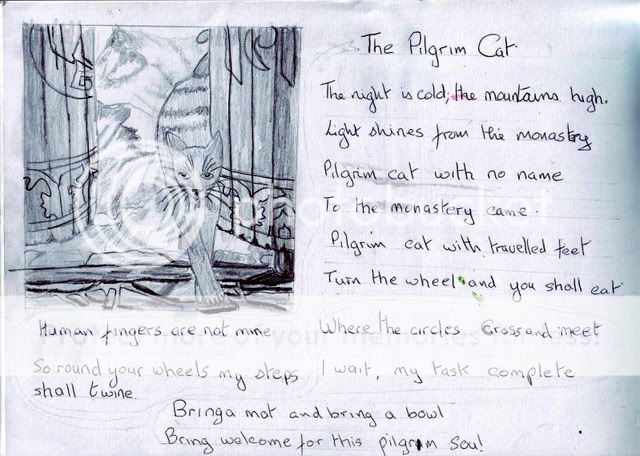 The Pilgrim Cat
The night is cold, the mountains high.
Light shines from the monastery
Pilgrim cat with no name
To the monastery came.
Pilgrim cat with travelled feet
Turn the wheel and you shall eat
Human fingers are not mine
So round your wheels my steps
shall twine
Where the circles Cross and meet
I wait, my task complete
Bring a mat and bring a bowl
Bring welcome for this pilgrim Soul
photobucket
Protect more of your memories for less!